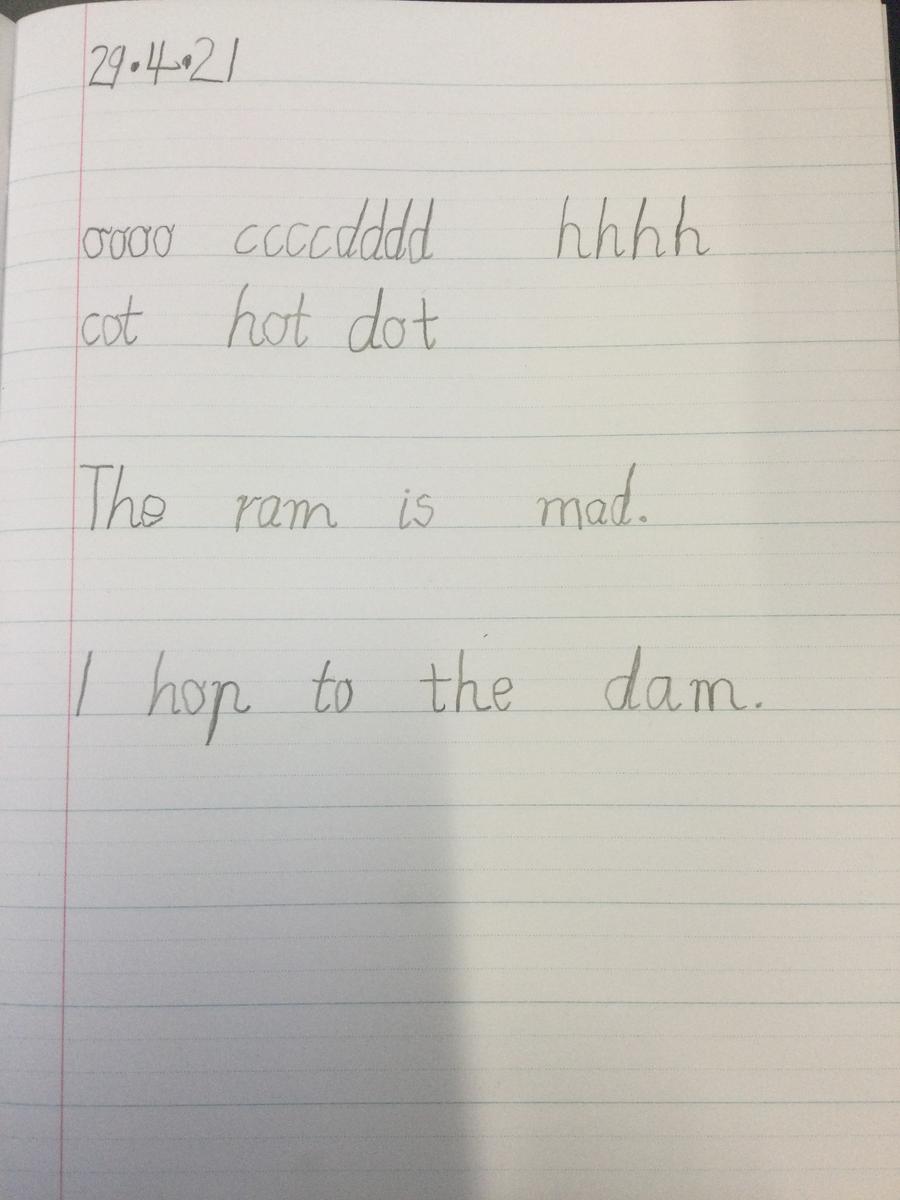 29.4.21
oooo ccccdddd hhhh
cot hot dot
The ram is mad.
I hop to the dam.